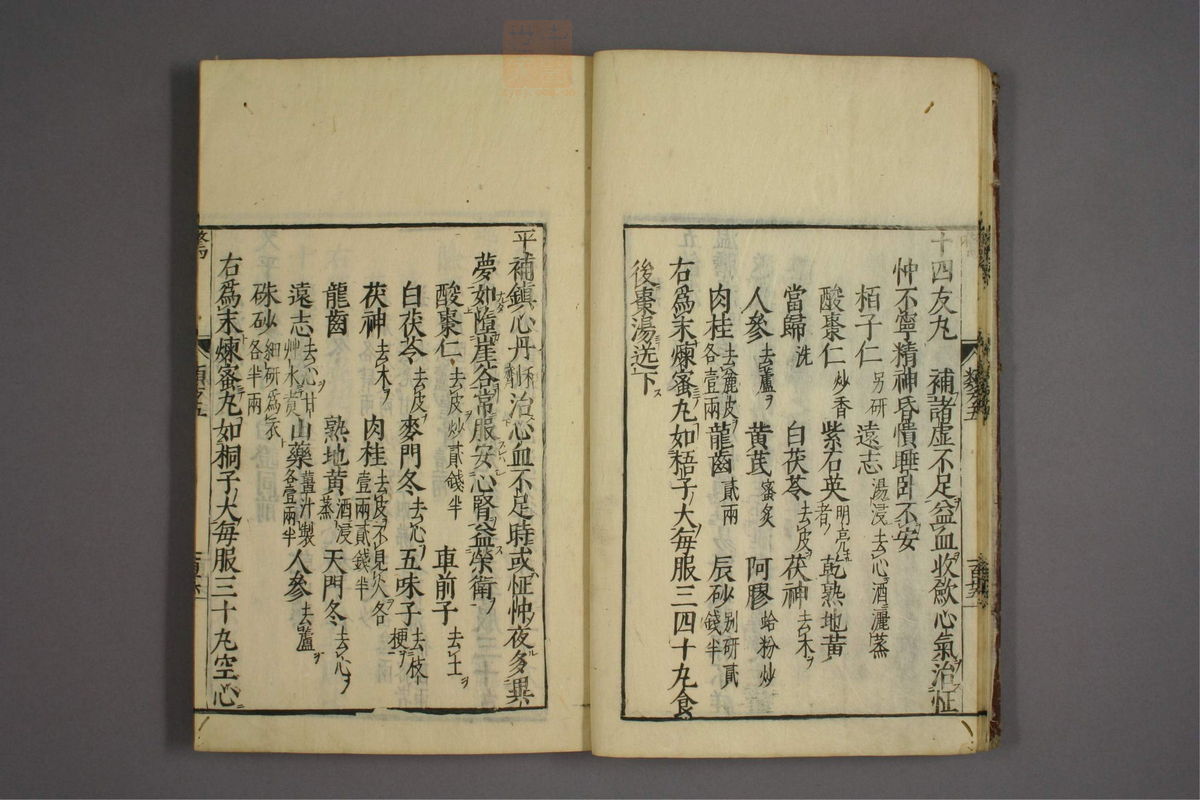 十四友丸 補諸虛不足益血收歛心氣治怔
忡不寧精神昏憒睡卧不安
栢子仁另研 遠志湯浸去心酒灑蒸
酸棗仁炒香 紫石英明亮者 乾熟地黃
當歸洗 白茯苓去皮 茯神去木
人參去蘆 黃芪蜜炙 阿膠蛤粉炒
肉桂去麄皮各壹兩 龍齒貳兩 辰砂別研貳錢半
右爲末煉蜜丸如梧子大每服三四十丸食
後棗湯送下
平補鎮心丹和劑 治心血不足時或怔忡夜多異
夢如墮崖谷常服安心腎益榮衛
酸棗仁去皮炒貳錢半 車前子去土
白茯苓去皮 麥門冬去心 五味子去枝梗
茯神去木 肉桂去皮不見火各壹兩貳錢半
龍齒 熟地黃酒浸蒸 天門冬去心
遠志去心甘艸水煑 山藥薑汁製各壹兩半 人參去蘆
硃砂細研爲衣各半兩
右爲末煉蜜丸如桐子大每服三十丸空心